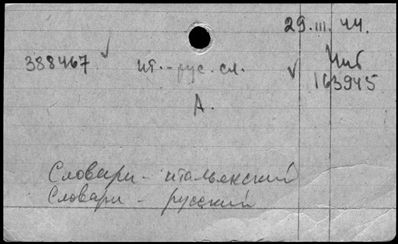 29.III.44.
388467 ит.-рус. сл.
163945
А.
Словари - итальянский
Словари - русский